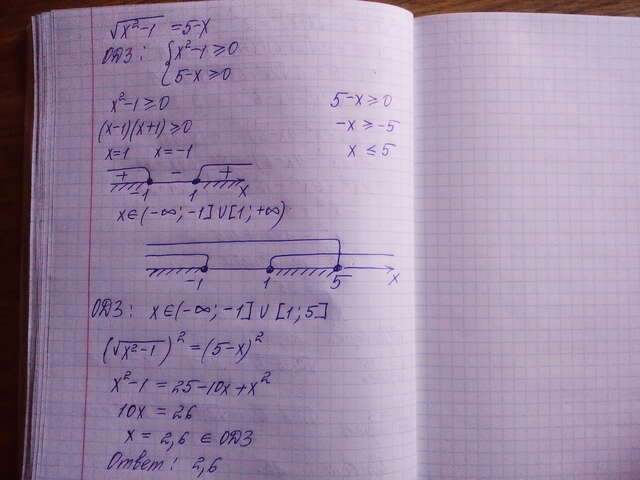 √x²-1 = 5-x
ОДЗ: { x²-1 ≥ 0
5-x ≥ 0
x²-1 ≥ 0 5-x ≥ 0
(x-1)(x+1) ≥ 0 -x ≥ -5
x=1 x=-1 x ≤ 5
+ - +
-1 1 x
x∈(-∞; -1] ∪ [1; +∞)
-1 1 5 x
ОДЗ: x∈(-∞; -1] ∪ [1; 5]
(√x²-1)² = (5-x)²
x²-1 = 25-10x+x²
10x = 26
x = 2,6 ∈ ОДЗ
Ответ: 2,6